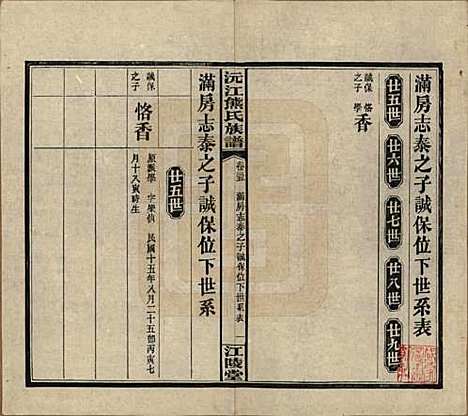 滿房志泰之子誠保位下世系表
廿五世
廿六世
廿七世
廿八世
廿九世
誠保
之子
恪
學
香
沅江熊氏族譜
卷五 滿房志泰之子誠保位下世系表 一
江陵堂
滿房志泰之子誠保位下世系
廿五世
誠保
之子
恪香
原派學 字樂僑 民國十五年八月二十五卽丙寅七
月十八寅時生